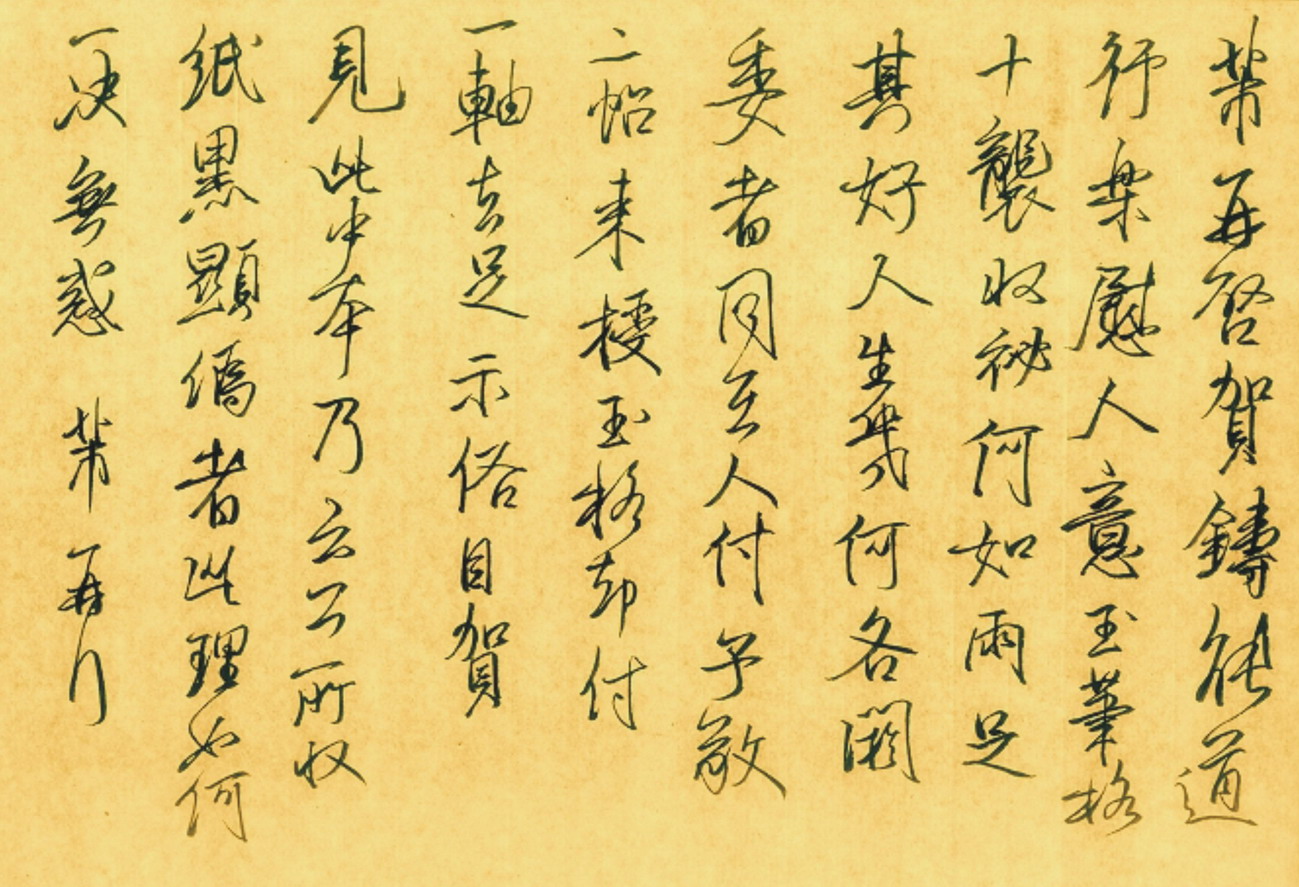 芾再啓賀鑄能道
行樂慰人意玉筆格
十襲收秘何如兩足
其好人生幾何各閼
委者同去人付子敬
二帖來授玉格却付
一軸去足示俗目賀
見此中本乃云云所收
紙黑顯偽者此理如何
一決無惑 芾再行